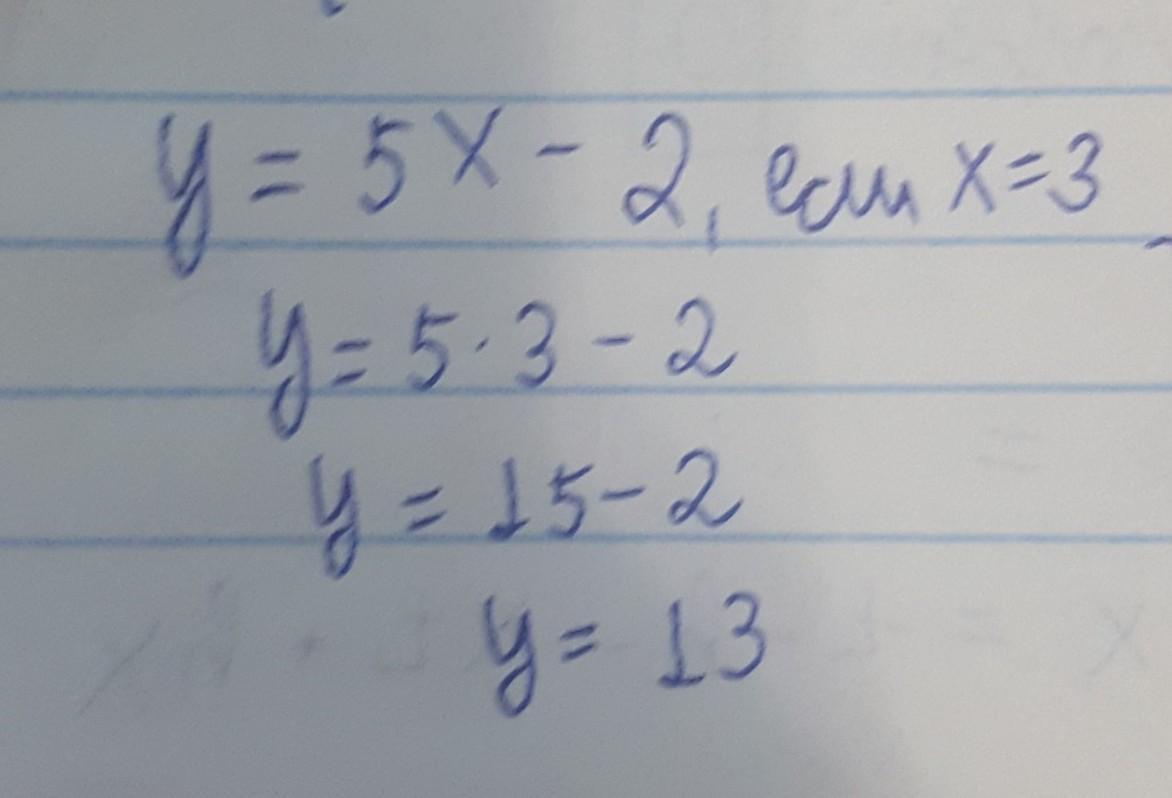 y = 5x - 2, если x = 3
y = 5 · 3 - 2
y = 15 - 2
y = 13